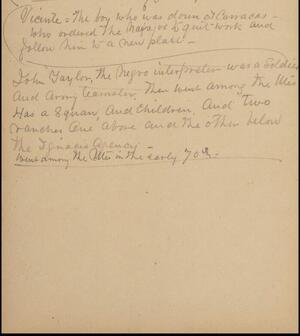 Vicente = The boy who was down at Carracas -
who ordered the Navajos to quit work and
follow him to a new place -
John Taylor, the Negro interpreter was a soldier
and army teamster. Then went among the Utes
Has a squaw and children and two
ranches one above and the other below
the Ignacio Agency -
Went among the Utes in the early 70s.